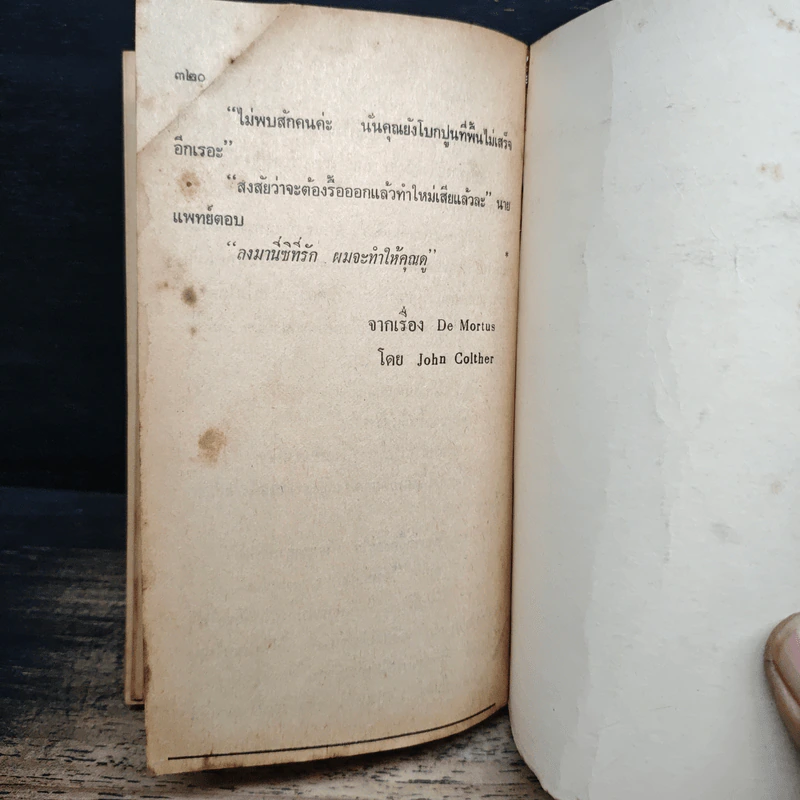 ๓๒๐
“ไม่พบสักคนค่ะ นั่นคุณยังโบกปูนที่พื้นไม่เสร็จ
อีกเรอะ”
“สงสัยว่าจะต้องรื้อออกแล้วทำใหม่เสียแล้วละ” นาย
แพทย์ตอบ
“ลงมานี่ซิที่รัก ผมจะทำให้คุณดู”
จากเรื่อง De Mortus
โดย John Colther